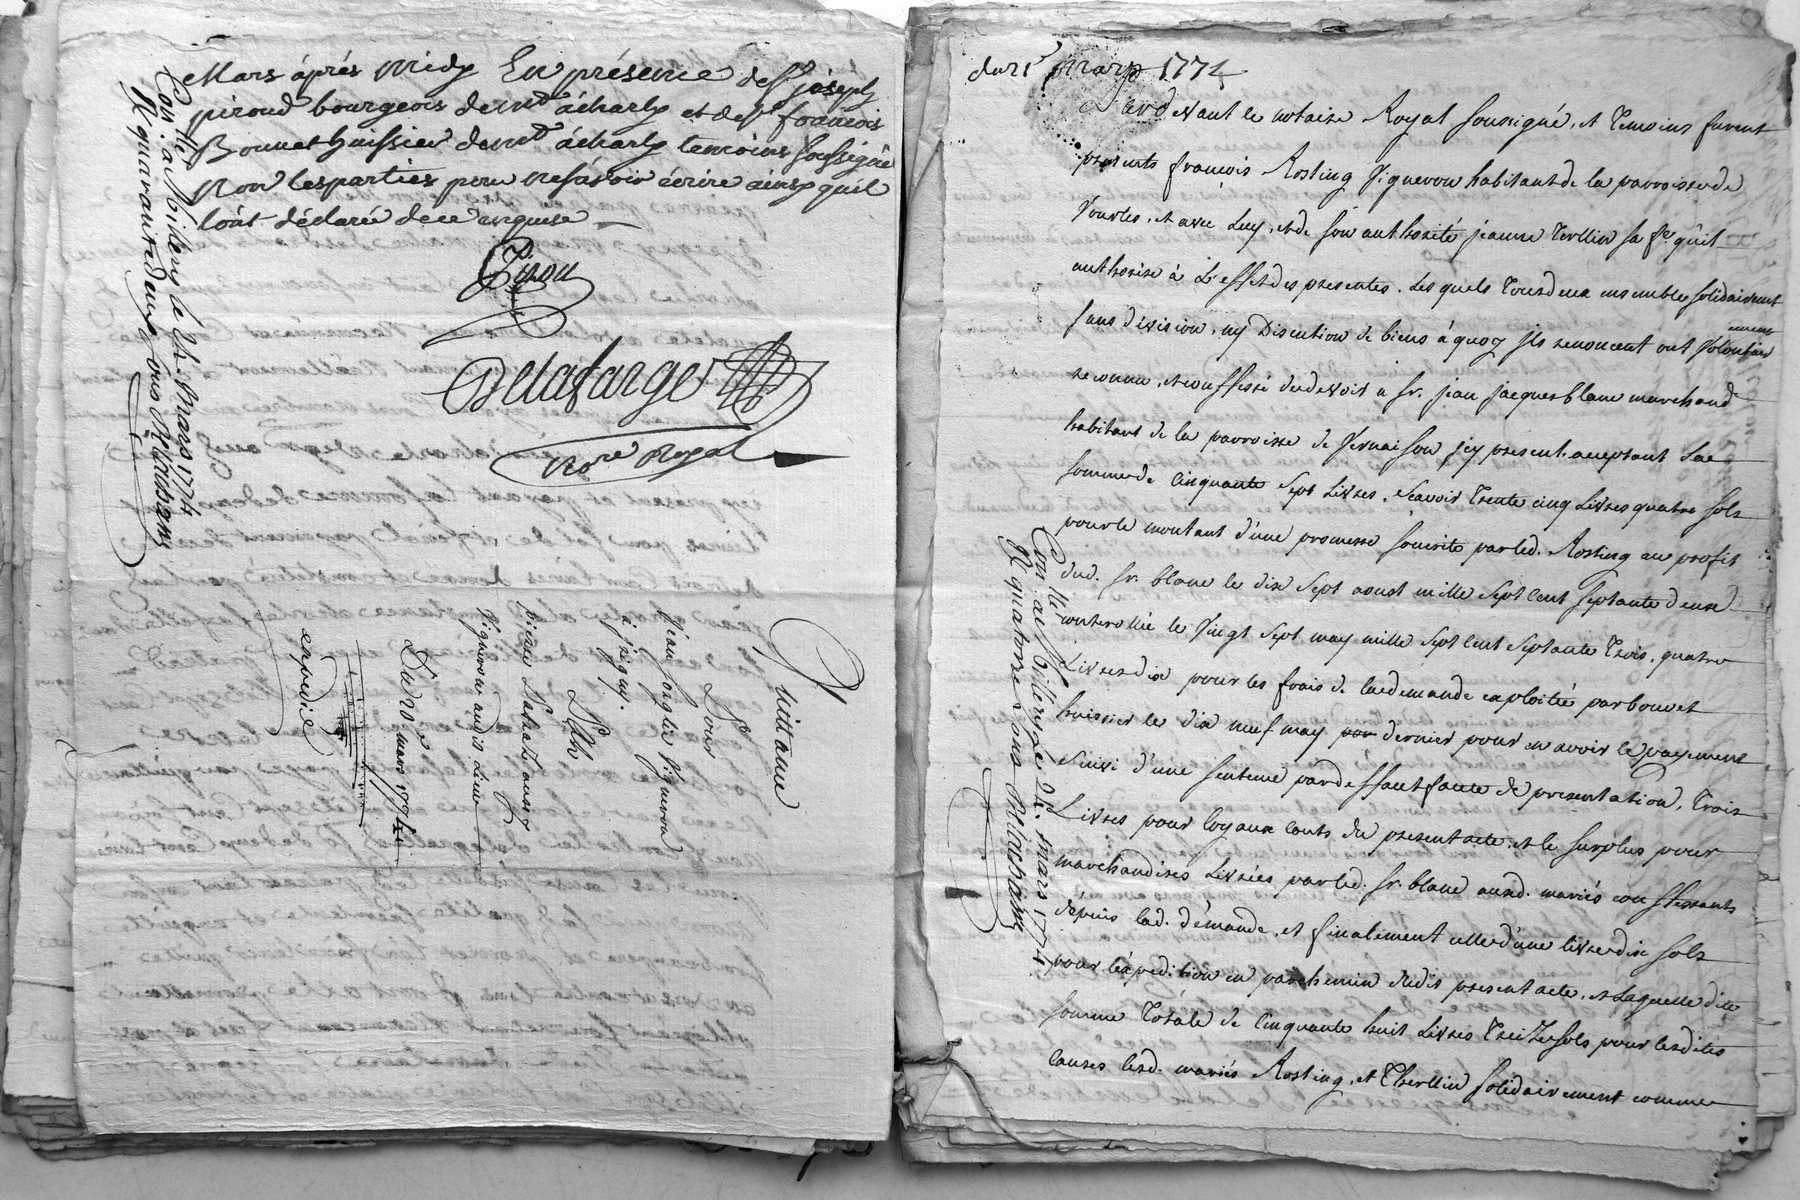 Mars áprés midy En présence de Sr. joséph
piroud bourgeois demt. à charly et de Sr. francois
Bonnet huissier demt. à charly temoins soussignés
Non les parties pour ne sávoir écrire ainsy qu'il
l'ont déclaré de ce enquise
Pirou
Delafarge
Nore Royal
Con.lle a Millery le 24 Mars 1774
R. quarante deux sous
Quittance
Pour
jean forgUe Vigneron
à jrigny.
Pierre aussy
Vigneron audit Lieu
Du 20 mars 1774
expedié
du 21 mars 1774
Pardevant le notaire Royal soussigné, et temoins furent
presents françois Rosting Vigneron habitant de la parroisse de
Vourles, et avec Luy, et de son authorité jeanne Terllin sa fe. qu'il
authorise à L'effet des presentes. Lesquels tous deux ensemble solidairement
sans division, ny Discution de biens à quoy jls renoncent ont Volontairement
reconnu, et conffessé dudevoir a sr. jean jacques blanc marchand
habitant de la parroisse de Vernaison jcy present acceptant Lae
somme de Cinquante sept Livres, Scavoir trente cinq Livres quatre sols
pour le montant d'une promesse souscrite par led. Rosting au profit
dud. sr. blanc le dix sept aoust mille sept cent septante deux
controllée le Vingt sept may mille sept cent septante trois, quatre
Livres dix pour les frais de la demande exploitée par bonnet
huissier le dix neuf may dernier pour en avoir le payement
suivi d'une sentence par deffaut faute de presentation, trois
Livres pour loyaux couts du present acte, et le surplus pour
marchandises Livrées par led. sr. blanc auxd. mariés conffessants
dépuis lad. démande, et finalement celle d'une livre dix sols
pour l'éxpedition en parchemin dudit present acte, et Laquelle dite
somme Totale de Cinquante huit Livres treize sols pour lesdites
causes lesd. mariés Rosting, et Therllin solidairement comme
Con.lle a Millery le 24. mars 1774
R. quatorze sous